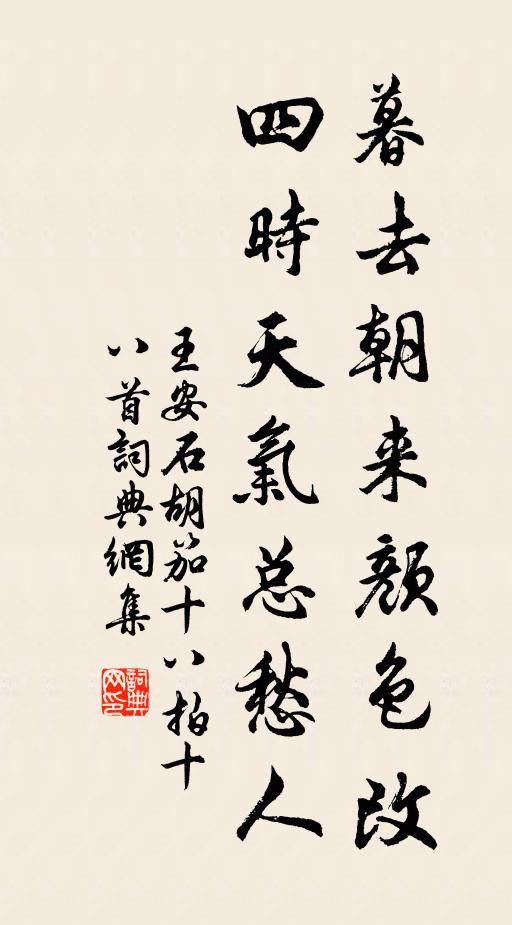 暮去朝来顏色改
四時天氣总愁人
王安石胡笳十八拍十
八首詞典網集
詞典网印